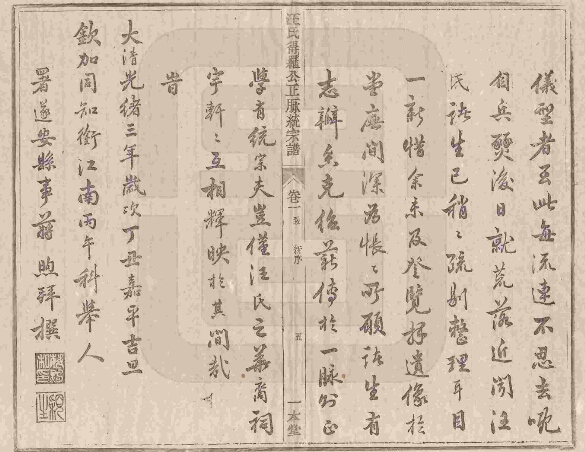 儀型者至此每流連不忍去呃
自兵燹後日就荒落近聞汪
氏諸生已稍〻疏剔整理耳目
一新惜余未及登覽拜遺像於
堂廡間深為悵〻所願諸生有
志辦香克繼薪傳於一脉別正
學有統宗夫豈僅汪氏之華裔祠
宇軒〻互相輝映於其間哉
汪氏得羅公正脉統宗譜
卷一
五
一本堂
旹
大清光緒三年歲次丁丑嘉平吉旦
欽加同知銜江南丙午科舉人
署遂安縣事蔣煦拜撰